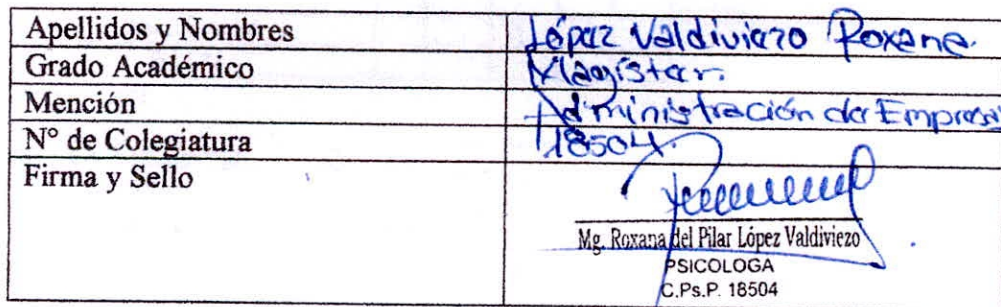 Apellidos y Nombres López Valdiviezo Roxana.
Grado Académico Magíster.
Mención Administración de Empresas
N° de Colegiatura 18504.
Firma y Sello
Mg. Roxana del Pilar López Valdiviezo
PSICOLOGA
C.Ps.P. 18504